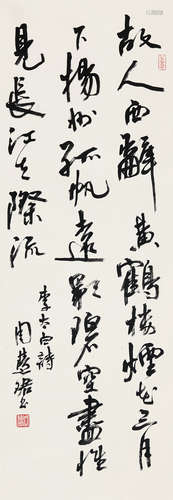 故人西辭黃鶴樓煙花三月
下揚州孤帆遠影碧空盡惟
見長江天際流
李太白詩
周慧珺書